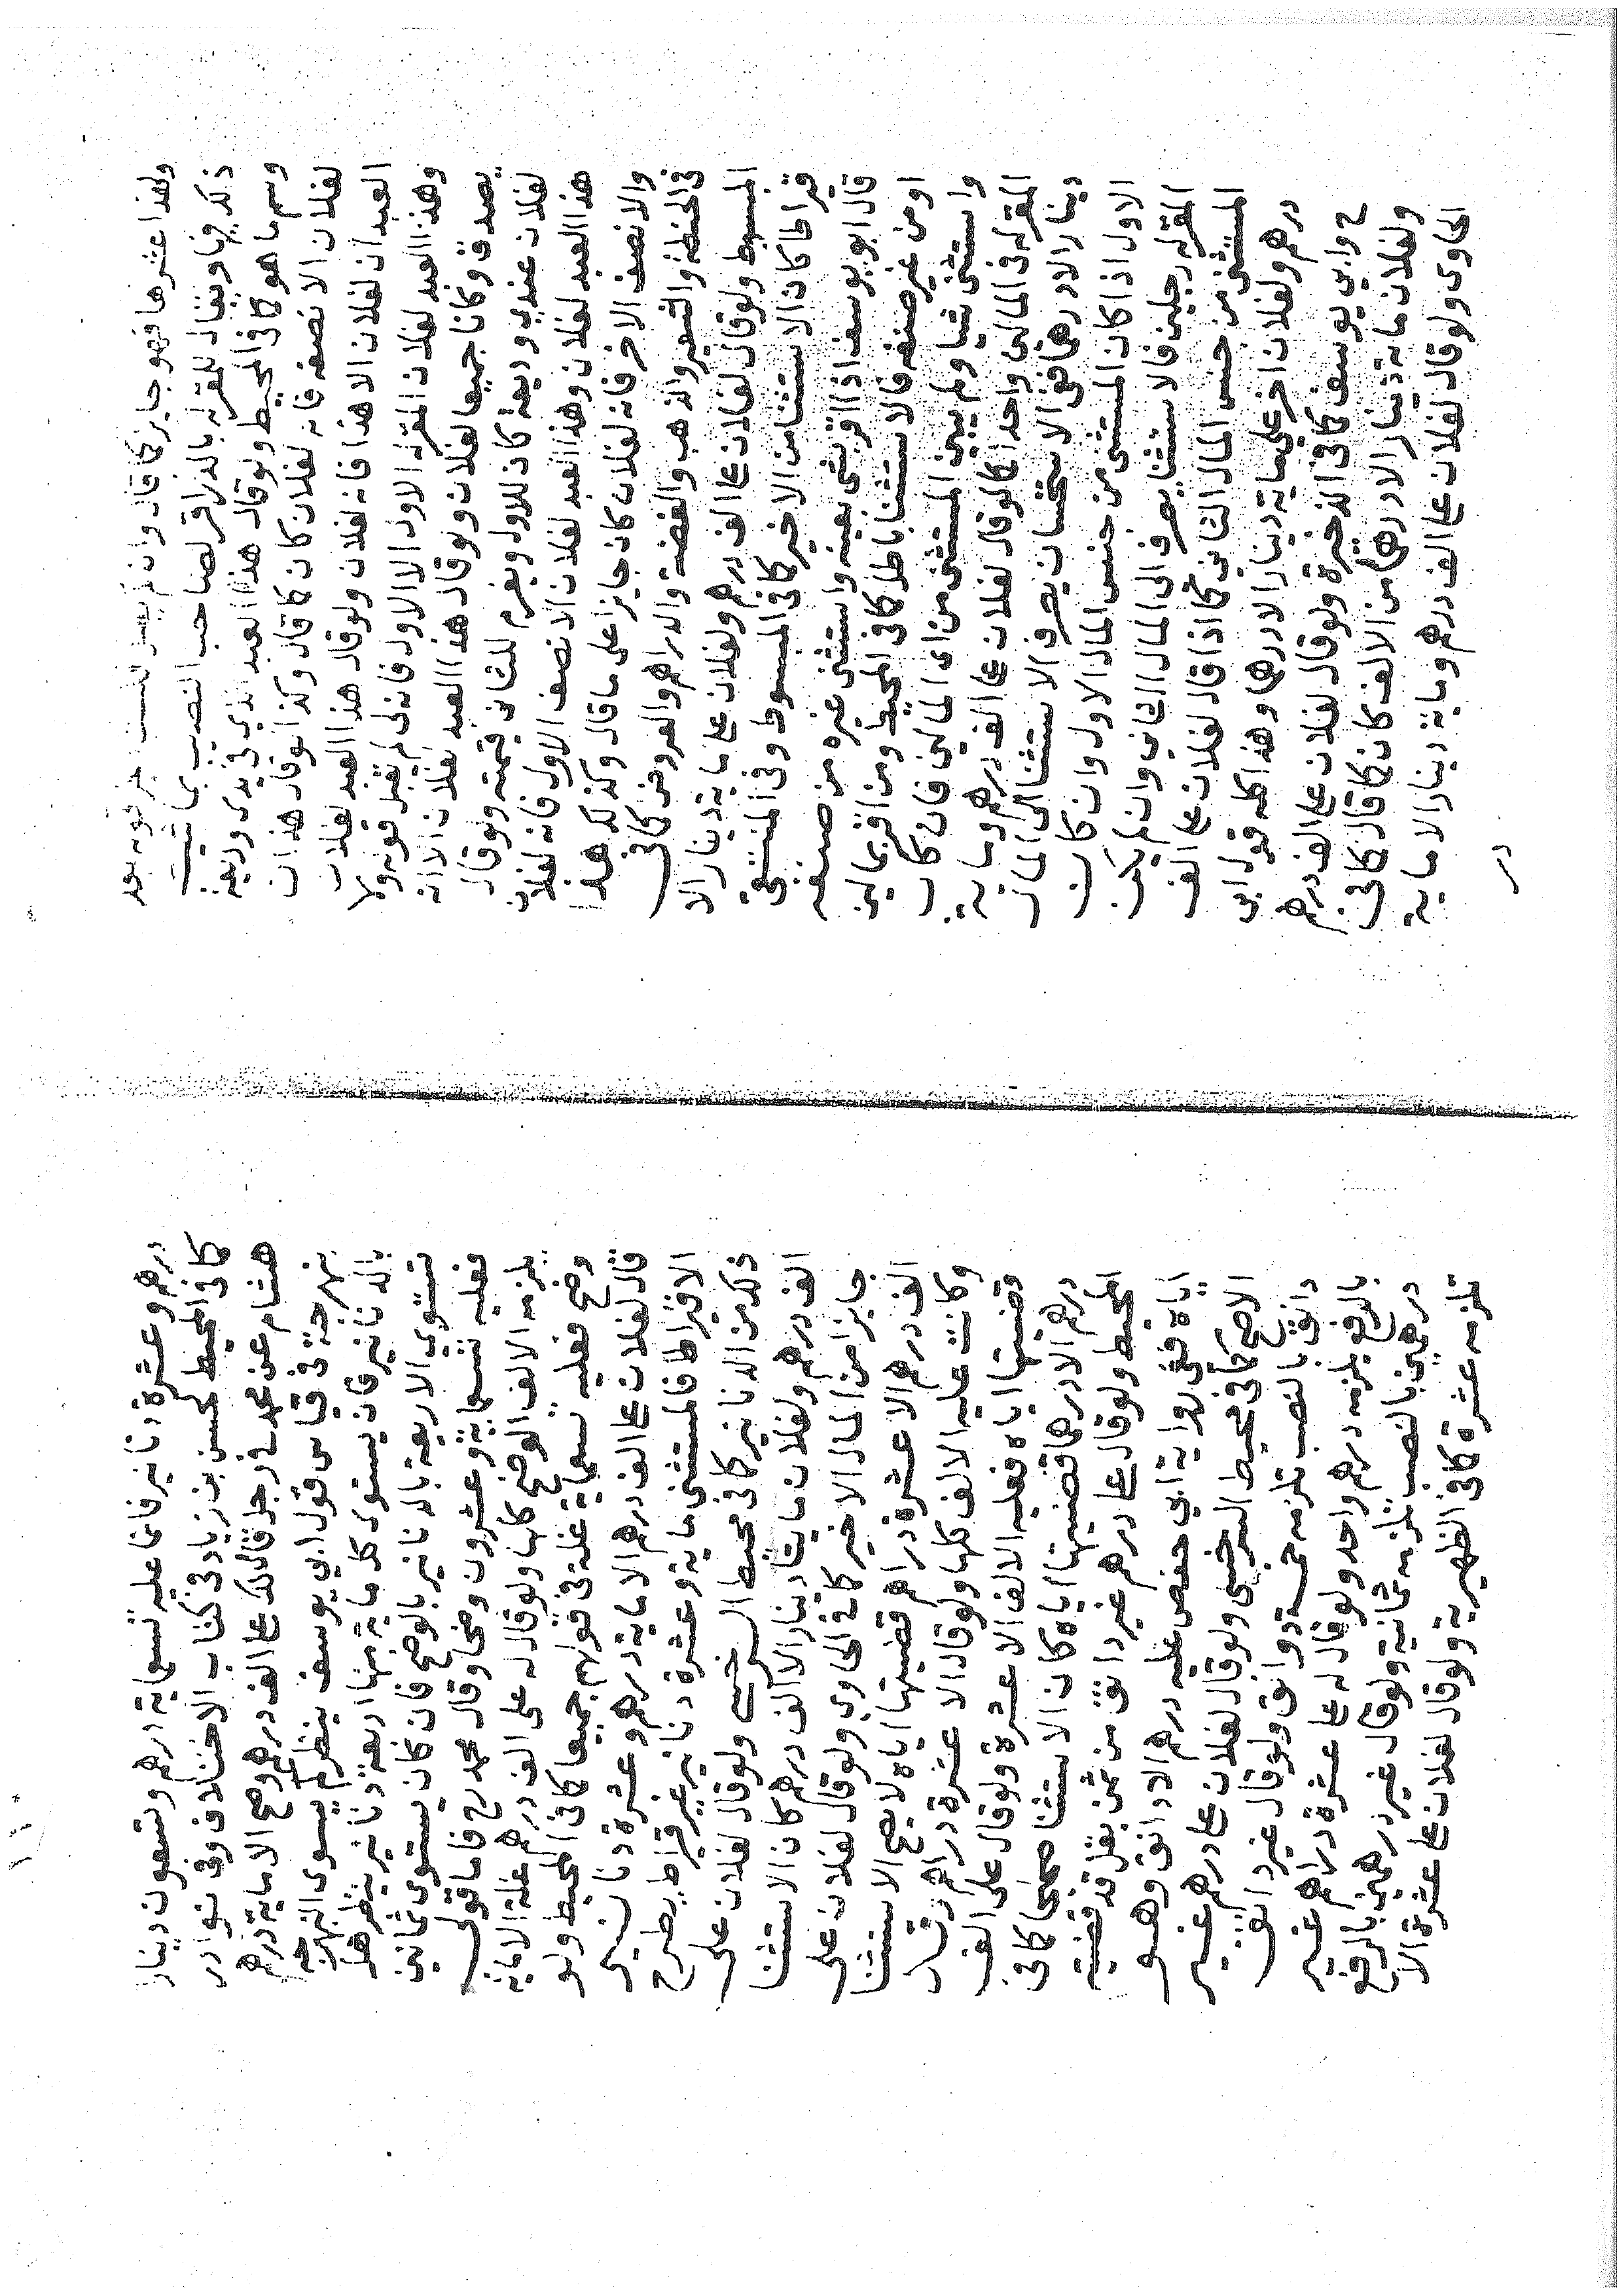 ولهذا عشرها فهو جايز كما قال وان لم يعد فلست قوله بعد
ذلك فيها ويقال للمقر له بالدار اقر لصاحب النصيب بما شيت
وسم ما هو كما في المحيط ولو قال هذا العبد الذي في يدي وديعة
لفلان الا نصفه فانه لفلان كان كما قال وكذا لو قال هذان
العبدان لفلان الا هذا فانه لفلان ولو قال هذا العبد لفلان
وهذا العبد لفلان المقر له الاول الا الاول فانه لي لم تقبل قوله ولا
يصدق وكانا جميعا لفلان ولو قال هذا العبد لفلان الا انه
لفلان عندي وديعة كان للاول ويغرم للثاني قيمته ولو قال
هذا العبد لفلان وهذا العبد لفلان الا نصف الاول فانه لفلان
والا نصف الاخر فانه لفلان كان جايزا على ما قال وكذلك هذا
في الحنطة والشعير والذهب والفضة والدراهم والعروض كما في
المبسوط ولو قال لفلان علي الف درهم ولفلان علي ماية دينار الا
قيراطا كان الاستثنا من الاخير كما في المبسوط وفي المنتقى
قال ابو يوسف اذا اقر بشي بعينه واستثنى غيره من صنفه
او من غير صنفه فالاستثنا باطل كما في المحيط ومن اقر بمالين
واستثنى شيا ولم يبين المستثنى من اي المالين فان كان
المقر له في المالين واحدا كما لو قال لفلان علي الف درهم وماية
دينار الا درهما ففي الاستحسان يصرف الاستثنا الى المال
الاول اذا كان المستثنى من جنس المال الاول وان كان
المقر له رجلين فالاستثنا يصرف الى المال الثاني وان لم يكن
المستثنى من جنس المال الثاني كما اذا قال لفلان علي الف
درهم ولفلان اخر علي ماية دينار الا درهما وهذا كله قول ابي
ح وابي يوسف كما في الذخيرة ولو قال لفلان علي الف درهم
ولفلان ماية دينار الا درهما من الالف كان كما قال كما في
الحاوي ولو قال لفلان علي الف درهم وماية دينار الا ماية
در
درهم وعشرة دنانير فانما عليه تسماية درهم وتسعون دينارا
كما في المحيط لحسن بن زياد في كتاب الاختلاف وفي نوادر
هشام عن محمد في رجل قال لك علي الف درهم وضح الا ماية درهم
بنهرجة في قياس قول ابي يوسف ينظر لم يسوى النبهرجه
بالدنانير فان يستوى كل ماية منها اربعة دنانير ينظر هل
تستوي الاربعة بالدنانير بالوضح فان كان يستوى ثمانين
فعليه تسماية وعشرون وضحا وقال محمد رح فاما قولي
يلزمه الالف الوضح كلها ولو قال له على الف درهم غلة الا ماية
وضح فعليه تسماية غلة في قولهم جميعا كما في المحيط ولو
قال لفلان علي الف درهم الا ماية درهم وعشرة دنانير
الا قيراطا فالمستثنى ماية وعشرة دنانير غير قيراط يطرح
ذلك من الدنانير كما في محيط السرخسي ولو قال لفلان على
الف درهم ولفلان مايتا دينار الا الف درهم كان الاستثنا
جايزا من المال الاخير كما في الحاوي ولو قال لفلان على
الف درهم الا عشرة دراهم قضيتها اياه لا يصح الاستثنا
وكانت عليه الالف كلها ولو قال الا عشرة دراهم وقد
قضيتها اياه فعليه الالف الا عشرة ولو قال على الف
درهم الا درهما قضيتها اياه كان الاستثنا صحيحا كما في
المحيط ولو قال علي درهم غير دانق من ثمن بقل قد قضيته
اياه ففي رواية ابي حفص عليه درهم الا دانق وهو
الاصح كما في محيط السرخسي ولو قال لفلان علي درهم غير
دانق بالنصب تلزمه خمسة دوانق ولو قال غير دانق
بالرفع يلزمه درهم واحد ولو قال له علي عشرة دراهم غير
درهمين بالنصب تلزمه ثمانية ولو قال غير درهمين بالرفع
تلزمه عشرة كما في الظهيرية ولو قال لفلان علي عشرة الا